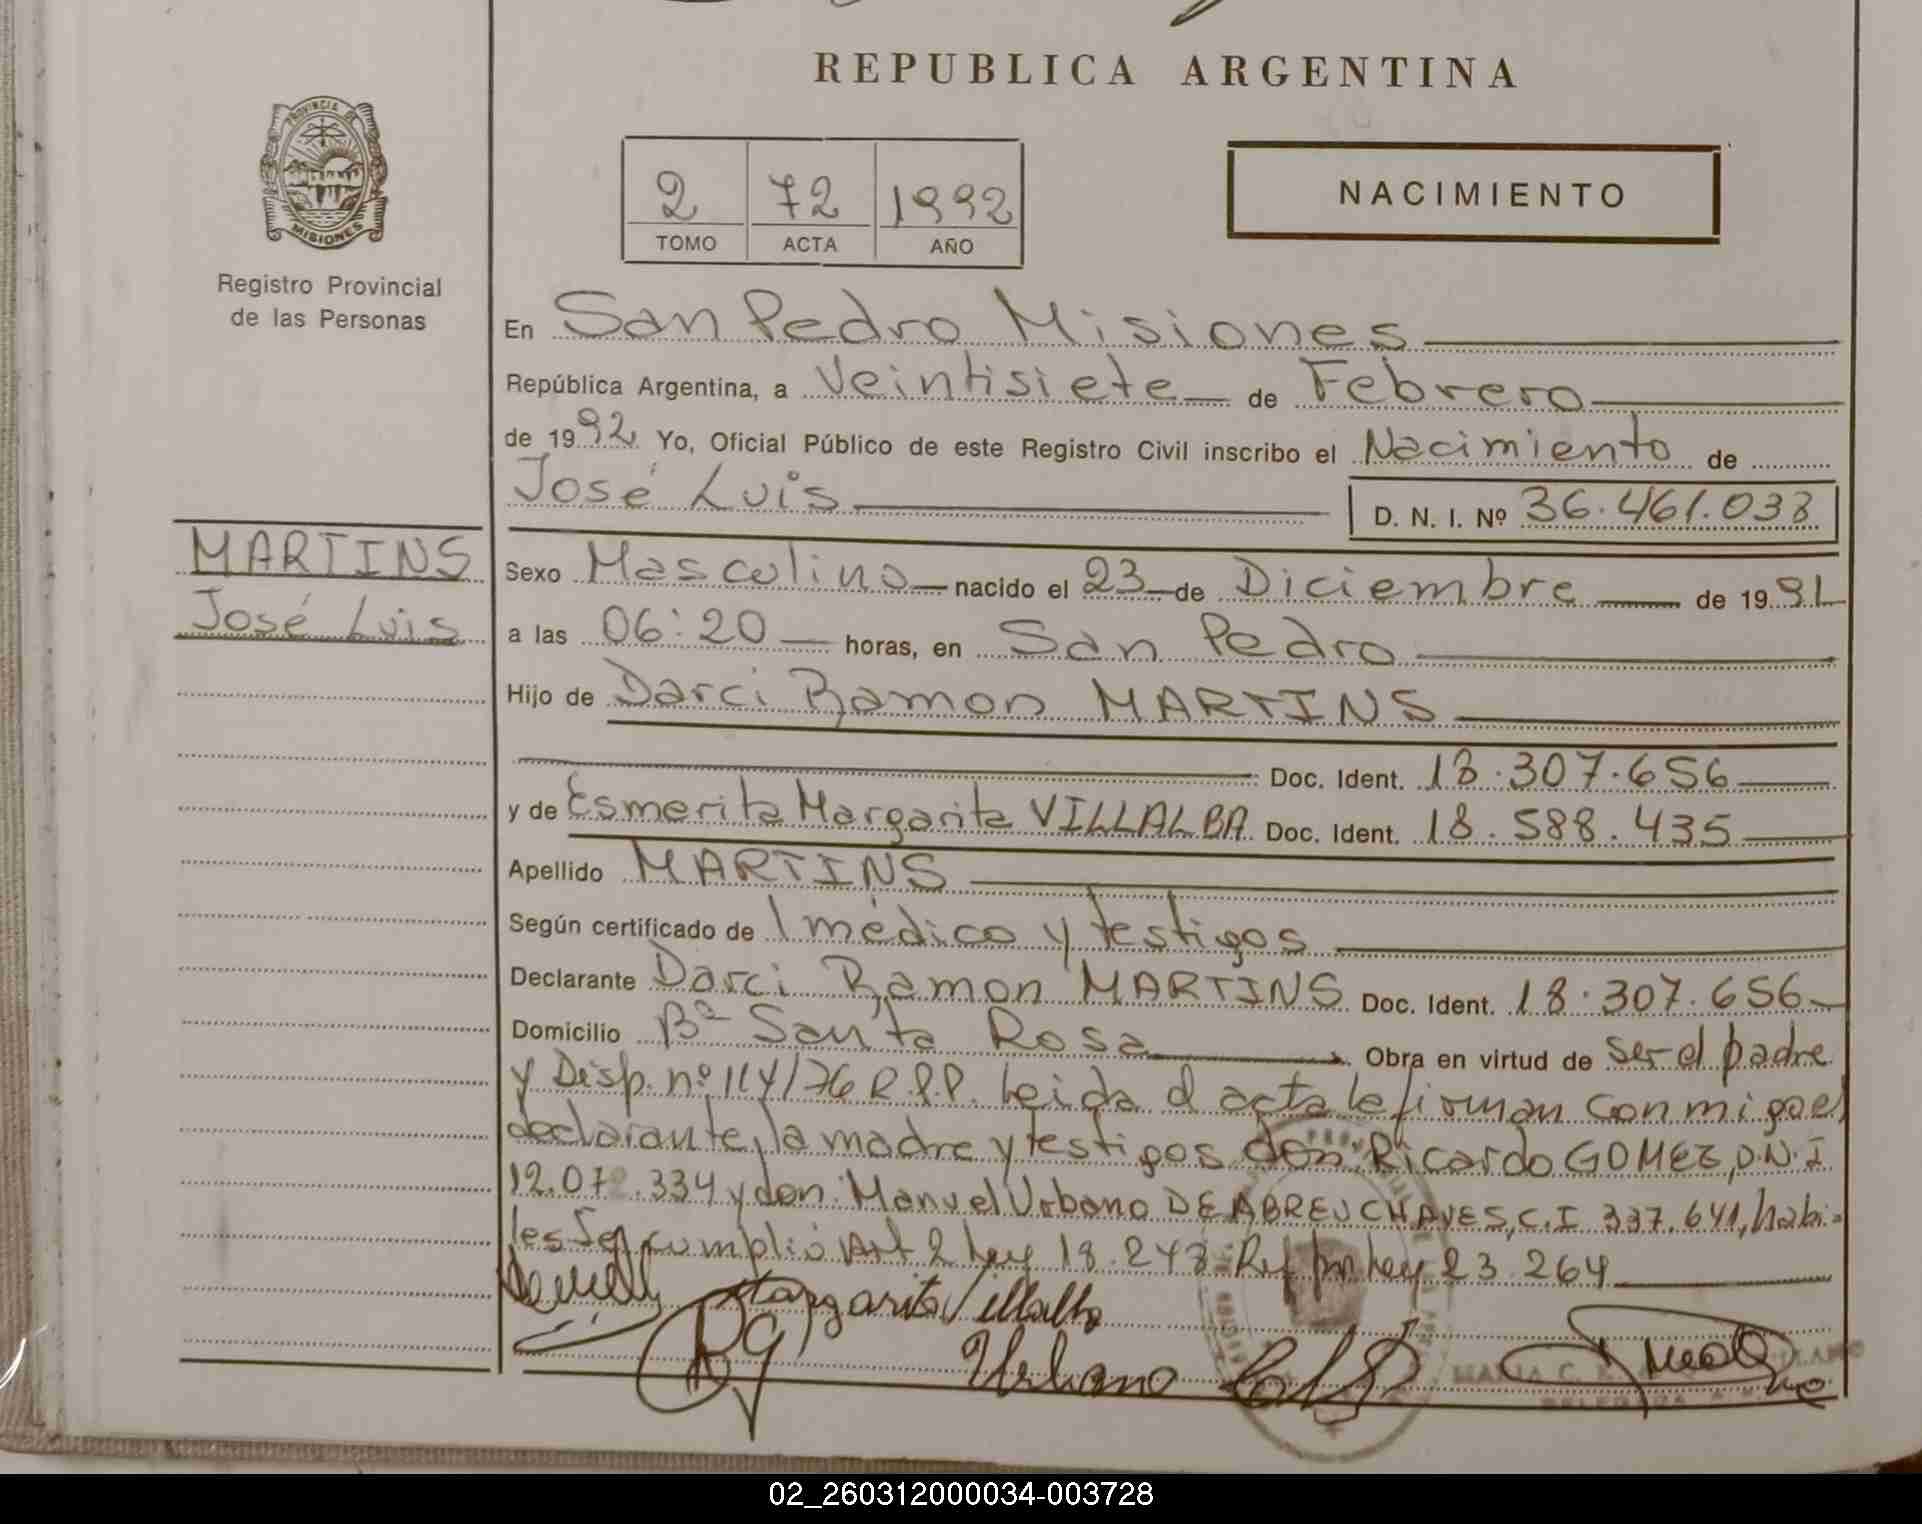 REPUBLICA ARGENTINA
PROVINCIA DE
MISIONES
Registro Provincial
de las Personas
2 72 1992
TOMO ACTA AÑO
NACIMIENTO
En San Pedro Misiones
República Argentina, a Veintisiete de Febrero
de 1992 Yo, Oficial Público de este Registro Civil inscribo el Nacimiento de
José Luis
D. N. I. Nº 36.461.038
MARTINS
José Luis
Sexo Masculino nacido el 23 de Diciembre de 1991
a las 06:20 horas, en San Pedro
Hijo de Darci Ramon MARTINS
Doc. Ident. 18.307.656
y de Esmerita Margarita VILLALBA Doc. Ident. 18.588.435
Apellido MARTINS
Según certificado de 1 médico y testigos
Declarante Darci Ramon MARTINS Doc. Ident. 18.307.656
Domicilio Bº Santa Rosa Obra en virtud de ser el padre
y Disp. nº 114/76 R.P.P. Leida el acta le firman conmigo el
declarante, la madre y testigos don Ricardo GOMEZ, D.N.I.
12.07 .334 y don Manuel Urbano DE ABREU CHAVES, C.I 337.641, habi-
les Se cumplió Art 2 Ley 18.248 Ref por Ley 23.264
Margarita Villalba
RG
Urbano
MARIA C.
DELEGADA
02_260312000034-003728